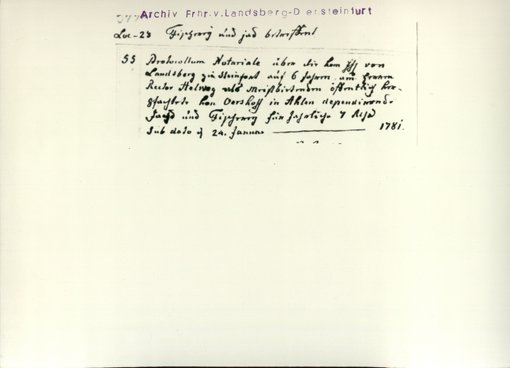 Archiv Frhr.v.Landsberg-Drensteinfurt
Loc-28 Fischerey und jad betreffent
55 Protocollum Notariale über die von von
Landsberg zu Steinfort auf 6 Jahren am Herren
Rector Helweg als Meistbietenden öffentlich
pfachtete von Oershoff in Ahlen dependirende
Jagd und Fischerey für Jahrlichs 7 Rthlr
Sub dato d 24. Januar 1781.